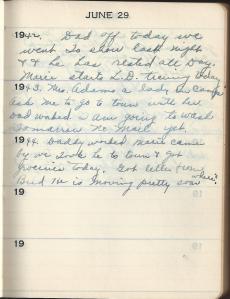 JUNE 29
1942. Dad off today we
went To show last night
& he has rested all Day.
Marie starts L.D. today
1943. Mrs. Adams a lady in camp
ask me to go to town with her
Dad worked I am going to wash
Tomorrow no mail yet.
1944. Daddy worked Marie came
by we took to town & got
groceries today. Got letter from
Bud He is moving pretty soon where?
19
19